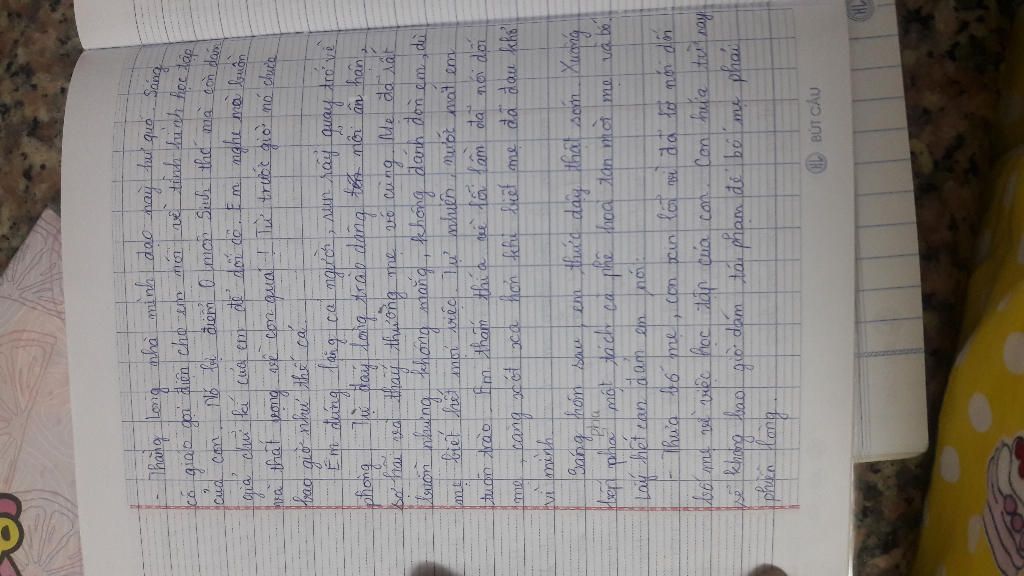 - Thằng Long nhà mình dạo này hư quá. Sáng
cô giáo gọi điện cho em nói về tình hình học tập
của con. Nó bị điểm 0 môn Sinh thế mà còn dám
giả chữ kí của em để đối cô. Em nghe mà buồn
và thất vọng về con quá! Từ trước giờ nó chưa
bao giờ như thế cả.
Em đứng lặng cả người, run rẩy quay trở về
phòng. Từ đáy lòng trào dâng nỗi ân hận,
sợ hãi và thấy thương mẹ vô cùng. Mẹ đã rất
buồn nhưng không mắng, không đánh đòn em, dù
mẹ biết hết mọi việc. Tự nhiên, nước mắt em
tuôn trào. Em thấm thía về lỗi lầm đã nói dối
mẹ, càng xót xa hơn khi biết mẹ đã đau khổ
vì mình
Sáng hôm sau, em thức dậy thật sớm. Xuống
bếp pha một tách cà phê hoà tan mời mẹ và bố
Lấy hết can đảm em nói:
- Thưa bố mẹ, con xin lỗi vì đã nói dối
bố mẹ về việc học tập của con. Con hứa từ nay
sẽ không bao giờ dám tái phạm để bố mẹ phải
phiền lòng.
BÚT CÂU